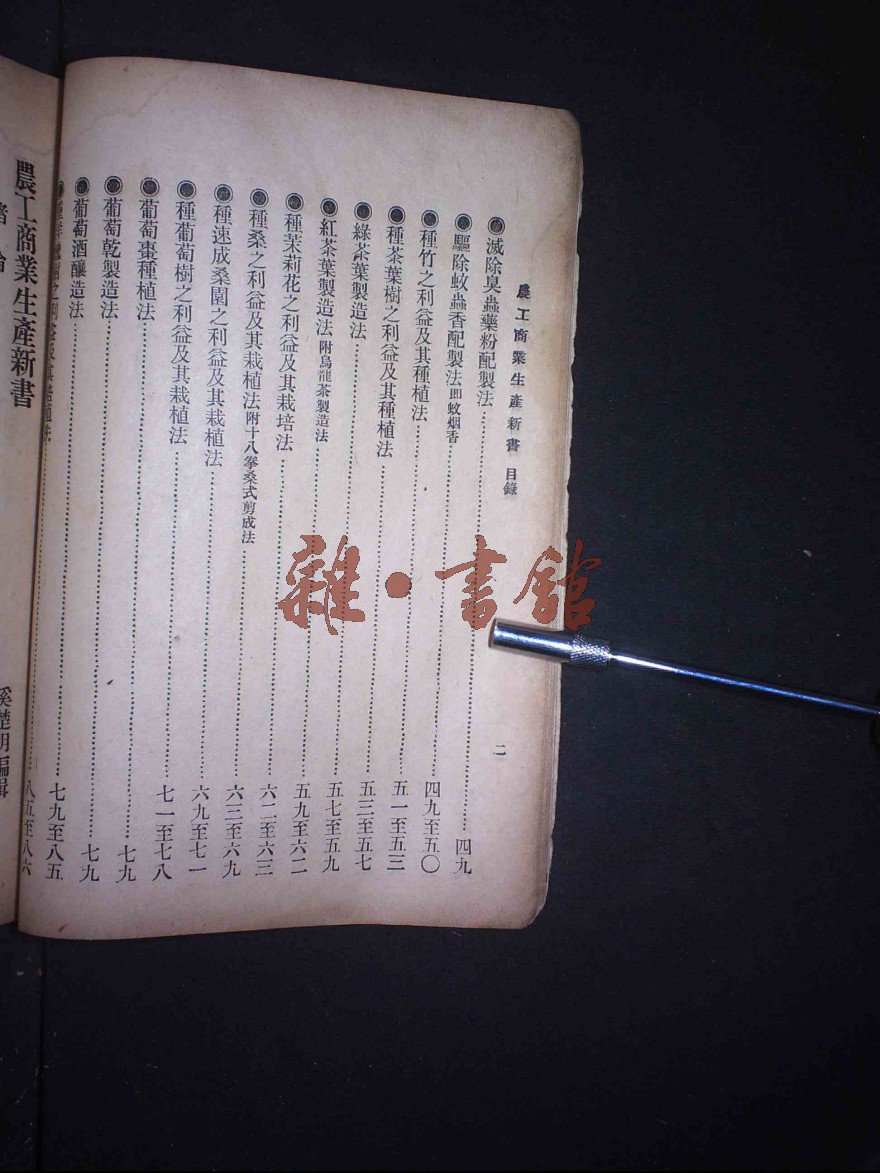 農工商業生產新書 目錄 二
滅除臭蟲藥粉配製法 四九
驅除蚊蟲香配製法 即蚊烟香 四九至五〇
種竹之利益及其種植法 五一至五三
種茶葉樹之利益及其種植法 五三至五七
綠茶葉製造法 五七至五九
紅茶葉製造法 附烏龍茶製造法 五九至六二
種茉莉花之利益及其栽培法 六二至六三
種桑之利益及其栽植法 附十八拳桑式剪成法 六三至六九
種速成桑園之利益及其栽植法 六九至七一
種葡萄樹之利益及其栽植法 七一至七八
葡萄棗種植法 七九
葡萄乾製造法 七九
葡萄酒釀造法 七九至八五
之利益及其植法 八五至八六
農工商業生產新書
楚明編輯
雜·書館